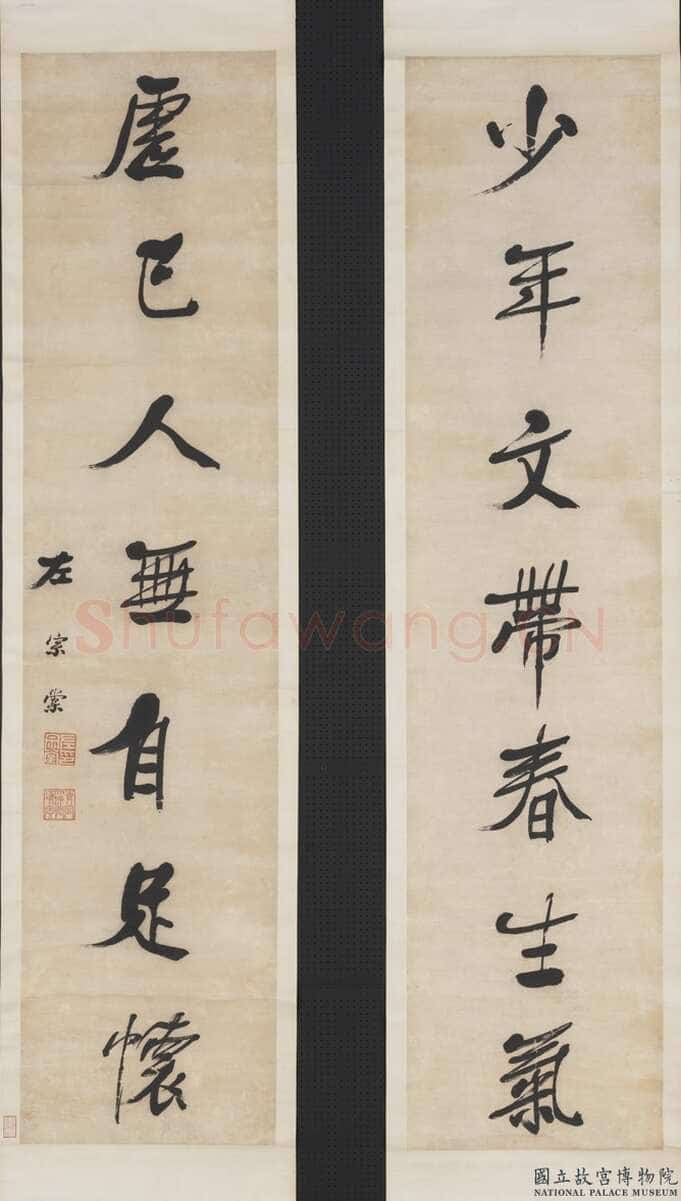 少年文帶春生氣
虛己人無自足懷
左宗棠
Shufawang.CN
國立故宮博物院
NATIONAL PALACE MUSEUM